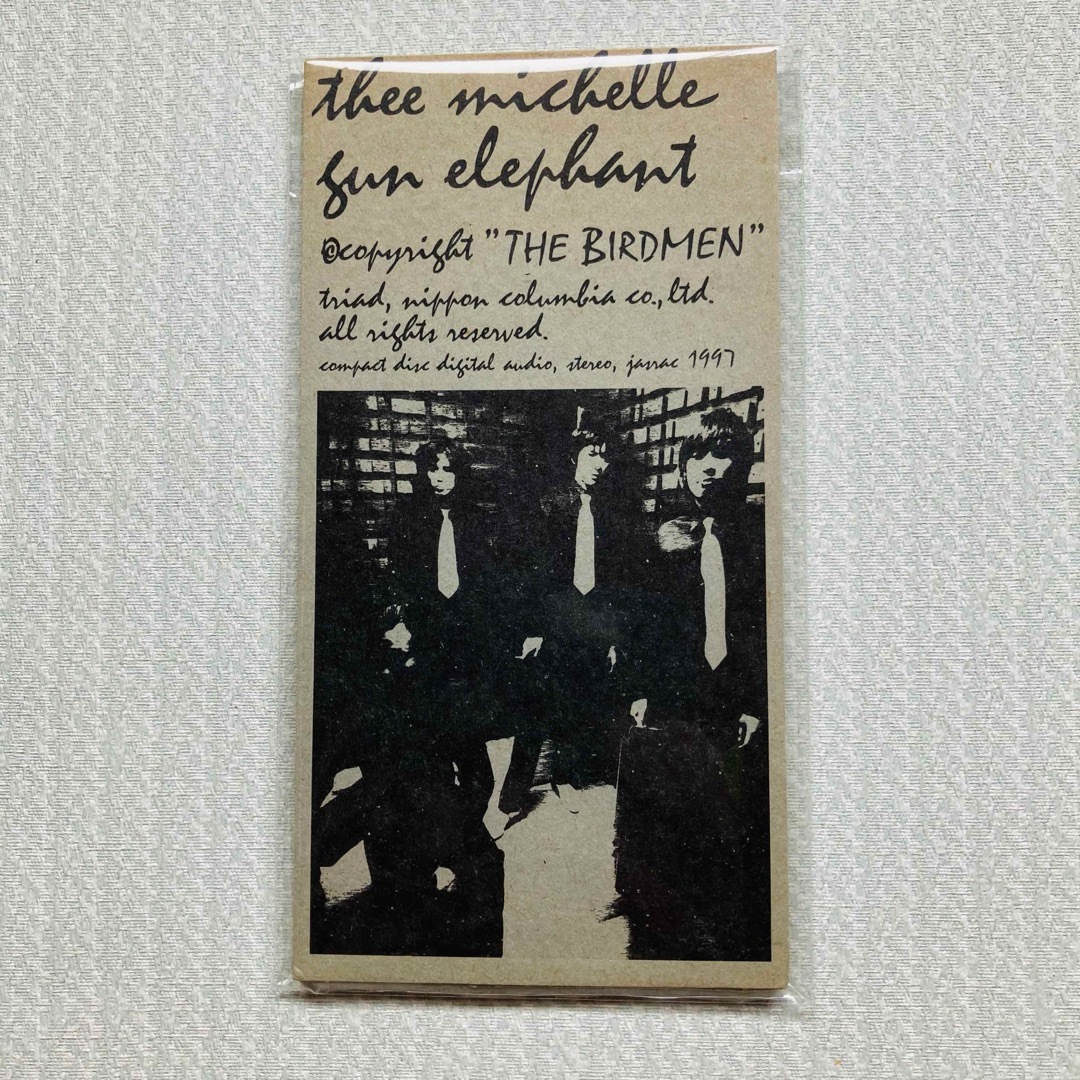 thee michelle
gun elephant
©copyright "THE BIRDMEN"
triad, nippon columbia co., ltd.
all rights reserved.
compact disc digital audio, stereo, jasrac 1997